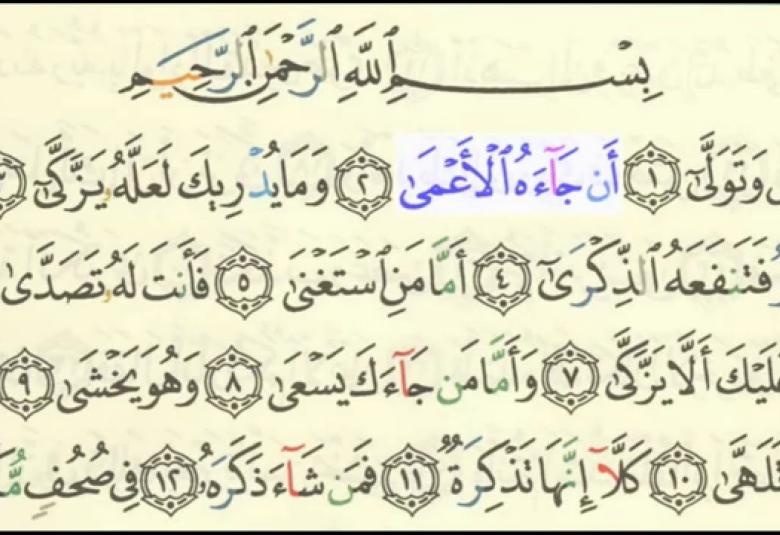 بِسْمِ ٱللَّهِ ٱلرَّحْمَٰنِ ٱلرَّحِيمِ
وَتَوَلَّىٰٓ ١ أَن جَآءَهُ ٱلْأَعْمَىٰ ٢ وَمَا يُدْرِيكَ لَعَلَّهُۥ يَزَّكَّىٰٓ ٣
فَتَنفَعَهُ ٱلذِّكْرَىٰٓ ٤ أَمَّا مَنِ ٱسْتَغْنَىٰ ٥ فَأَنتَ لَهُۥ تَصَدَّىٰ
عَلَيْكَ أَلَّا يَزَّكَّىٰ ٧ وَأَمَّا مَن جَآءَكَ يَسْعَىٰ ٨ وَهُوَ يَخْشَىٰ ٩
تَلَهَّىٰ ١٠ كَلَّآ إِنَّهَا تَذْكِرَةٌ ١١ فَمَن شَآءَ ذَكَرَهُۥ ١٢ فِى صُحُفٍ